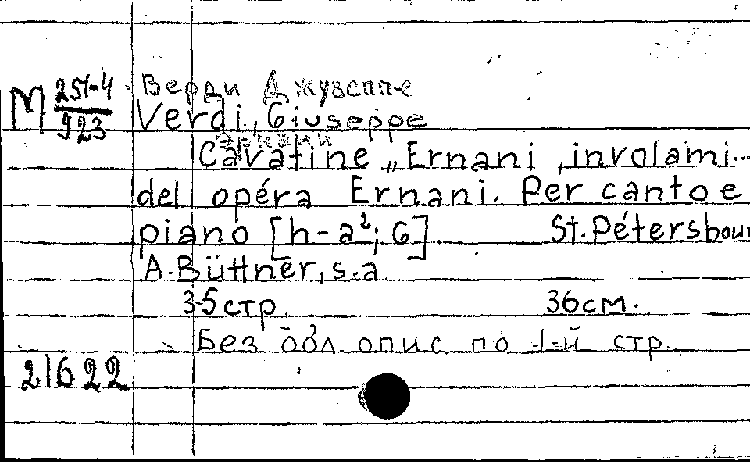 М 251-4
923
Верди Джузеппе
Verdi, Giuseppe
Эрнани
Cavatine „Ernani, involami...
del opéra Ernani. Per canto e
piano [h-a²; G] St. Pétersbour
A. Büttner, s.a
3-5 стр. 36 см.
Без обл. опис. по 1-й стр.
21622